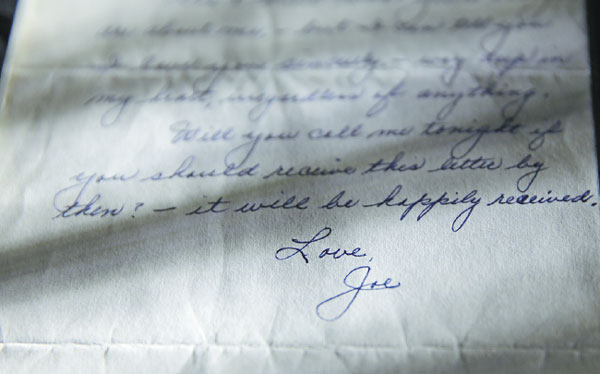 or about me, - but I can tell you
I love you sincerely - way deep in
my heart, regardless of anything.
Will you call me tonight if
you should receive this letter by
then? - it will be happily received.
Love,
Joe